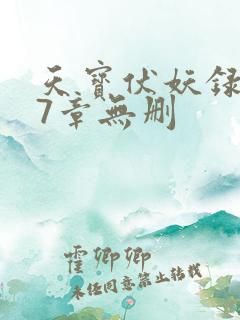 天寳伏妖録
7章無删
霍卿卿
未经同意禁止转载